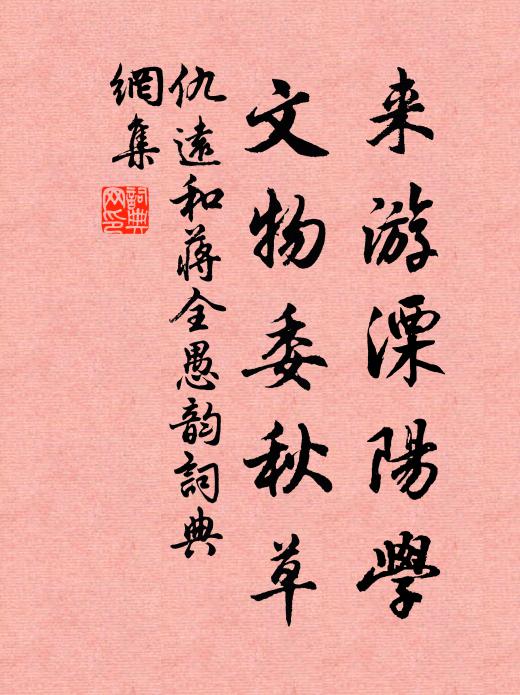 来游溧陽學
文物委秋草
仇遠和蔣全愚韵詞典
網集
詞典
网印